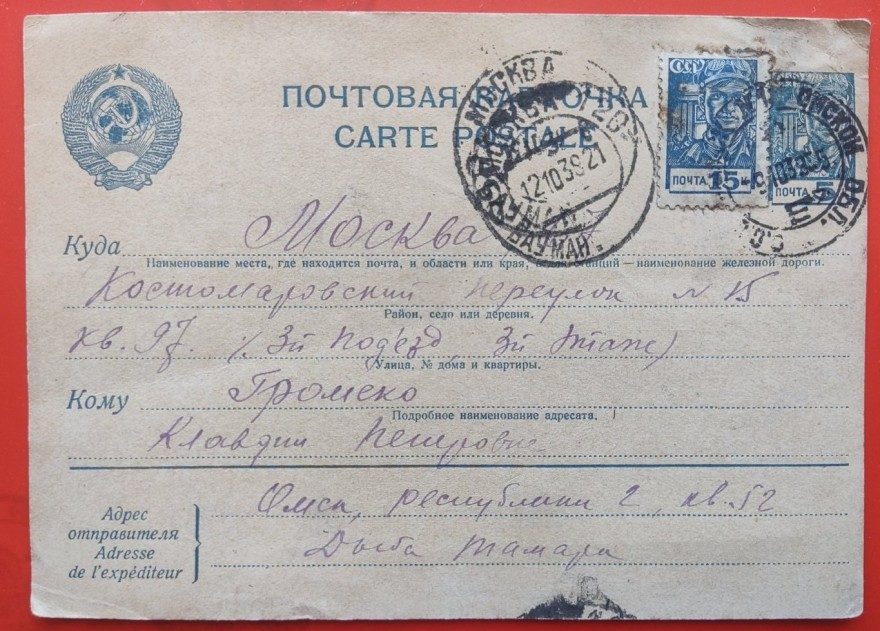 ПОЧТОВАЯ КАРТОЧКА
CARTE POSTALE
СССР
ПОЧТА 15
ПОЧТА
МОСКВА
12 10 39 21
БАУМАН.
ОМСКОЙ ОБЛ.
Куда Москва
Наименование места, где находится почта, и области или края, станций — наименование железной дороги.
Костомаровский переулок N 15
Район, село или деревня.
кв. 97. 3й подезд, 3й Этаж)
(Улица, № дома и квартиры.
Кому Громеко
Подробное наименование адресата.
Клавдии Петровне
Адрес
отправителя
Adresse
de l'expéditeur
Омск, республики 2, кв. 52
Дыба Тамара